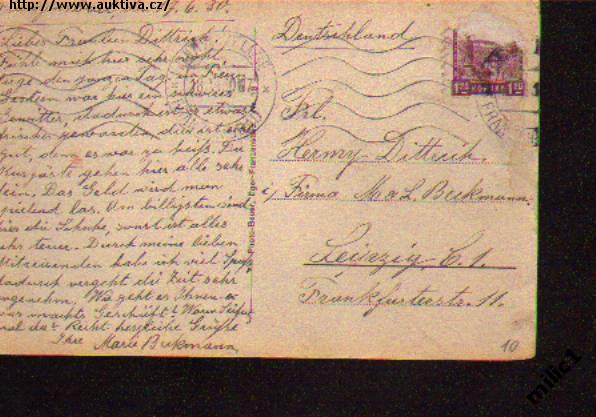 https://www.auktiva.cz/
6.30.
Deutschland
Liebes Fräulein Dittrich!
Fühle mich hier sehr wohl,
liege den ganzen Tag im Freien
Gestern war hier ein schweres
Gewitter, dadurch ist es etwas
frischer geworden, dies ist sehr
gut, denn es war zu heiß. Die
Kurgäste gehen hier alle sehr
fein. Das Geld wird man
los. Am billigsten sind
hier die Schuhe, sonst ist alles
sehr teuer. Durch meine lieben
Mitreisenden habe ich viel Spaß,
dadurch vergeht die Zeit sehr
angenehm. Wie geht es Ihnen u.
was machts Geschäft?
mal da? Recht herzliche Grüße
Ihre Marie Beckmann
Frl.
Herny Dittrich.
c/ Firma M & L. Beckmann
Leipzig C. 1.
Frankfurterstr. 11.
10
milic1